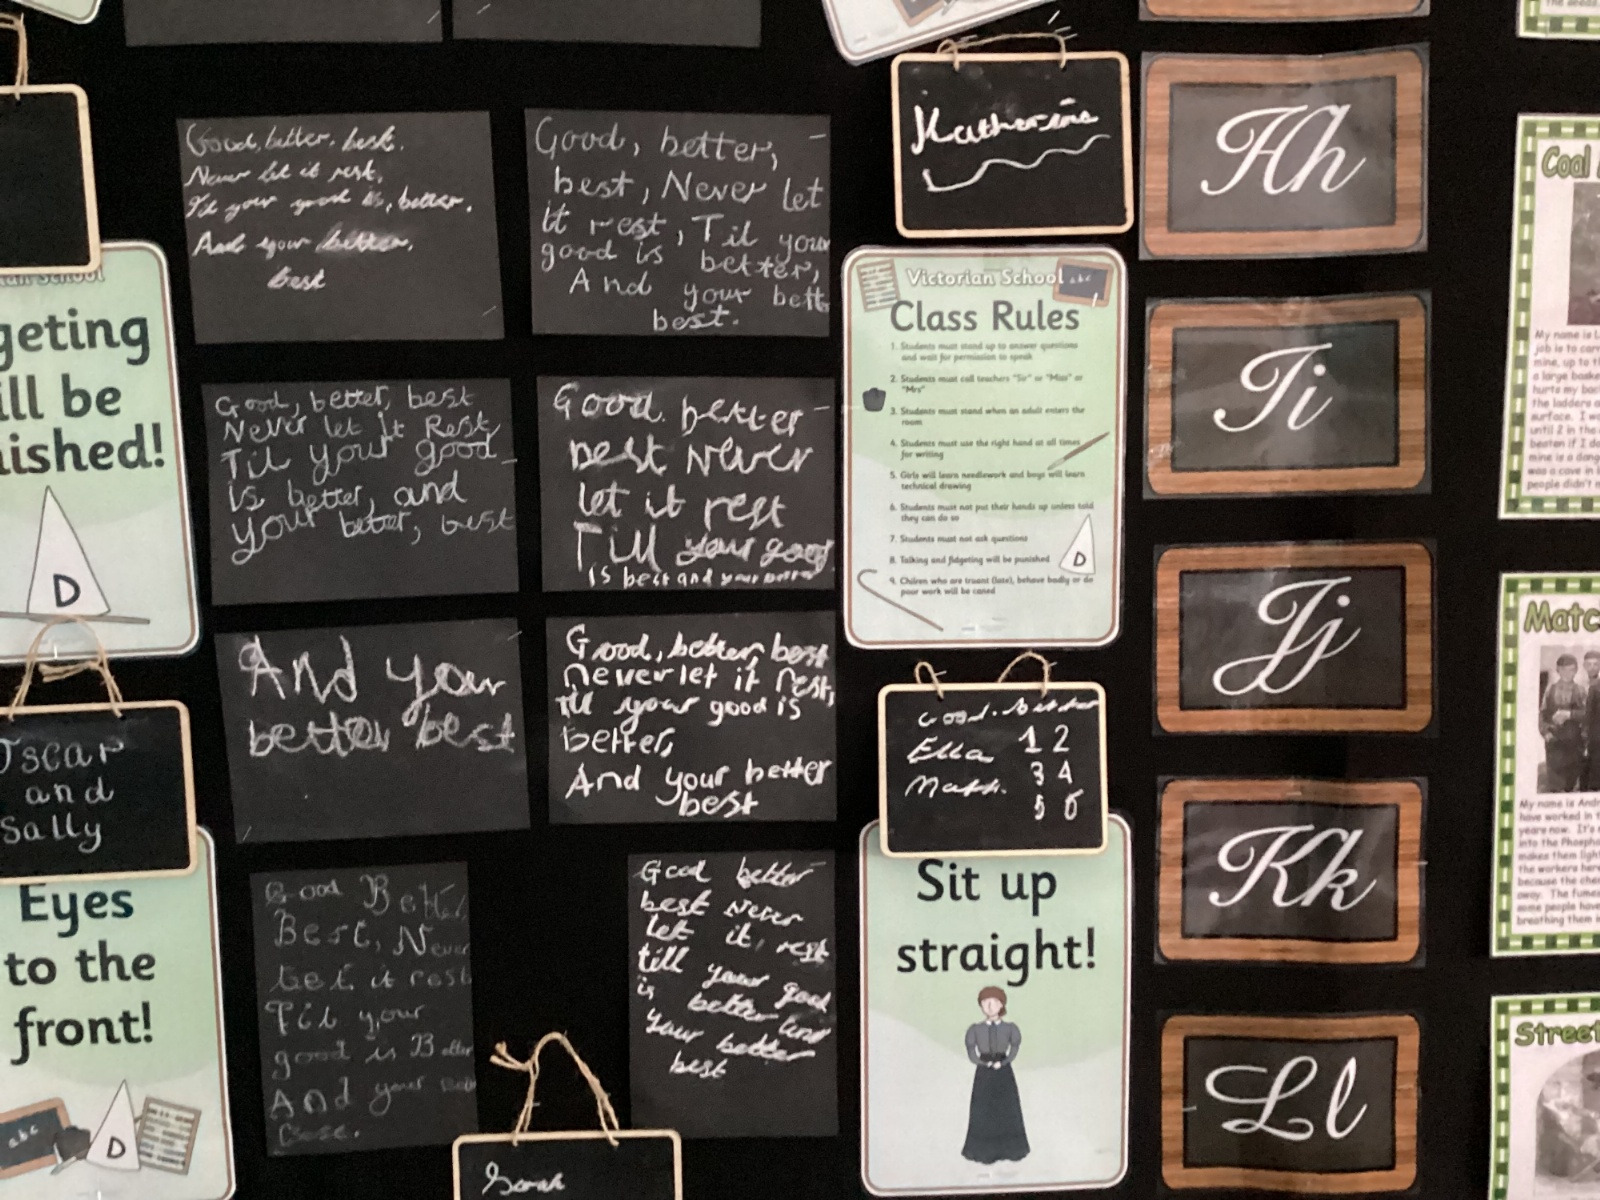 geting
ill be
nished!
D
Oscar
and
Sally
Eyes
to the
front!
abc
D
Good, better, best.
Never let it rest,
Til your good is, better.
And your better,
best
Good, better,
best, Never let
it rest, Til your
good is better,
And your bett
best.
Good, better, best
Never let it Rest,
Til your good
is better, and
your better, best
Good better
best Never
let it rest
Till your good
is best and your better
And your
better best
Good, better, best
Never let it rest,
til your good is
better,
And your better
best
Good Better,
Best, Never
let it rest
Til your
good is Better
And your
Best.
Good better
best Never
let it, rest
till your good
is better and
your better
best
Sarah
Katherine
Victorian School
abc
Class Rules
1. Students must stand up to answer questions
and wait for permission to speak
2. Students must call teachers "Sir" or "Miss" or
"Mrs"
3. Students must stand when an adult enters the
room
4. Students must use the right hand at all times
for writing
5. Girls will learn needlework and boys will learn
technical drawing
6. Students must not put their hands up unless told
they can do so
7. Students must not ask questions
8. Talking and fidgeting will be punished
9. Chilren who are truant (late), behave badly or do
poor work will be caned
D
Good. Better
Ella 1 2
3 4
Math. 5 6
Sit up
straight!
Hh
Ii
Jj
Kk
Ll
Coal
My name is L
job is to carr
mine, up to th
a large baske
hurts my bac
the ladders a
surface. I wo
until 2 in the
beaten if I do
mine is a dang
was a cave in
people didn't
Matc
My name is Andr
have worked in t
years now. It's
into the Phospho
makes them light
the workers here
because the che
away. The fumes
some people have
breathing them i
Street